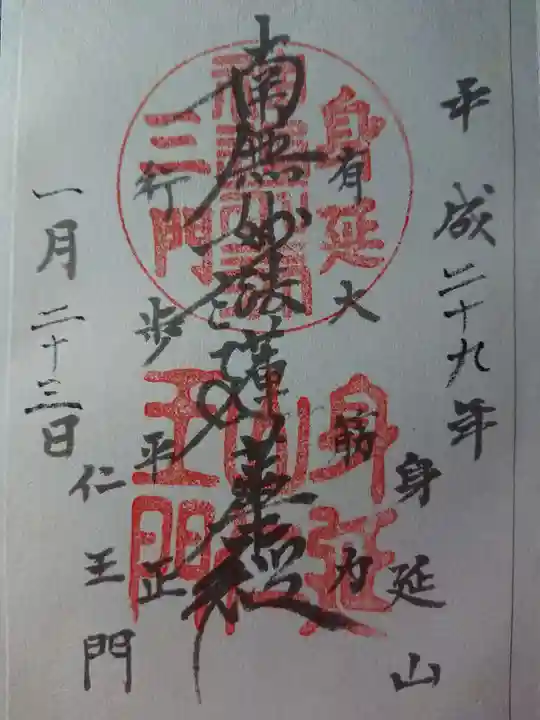 平成二十九年
身延山
有大筋力
南無妙法蓮華経
行歩平正
仁王門
一月二十三日
身延
三門
身延山
王門